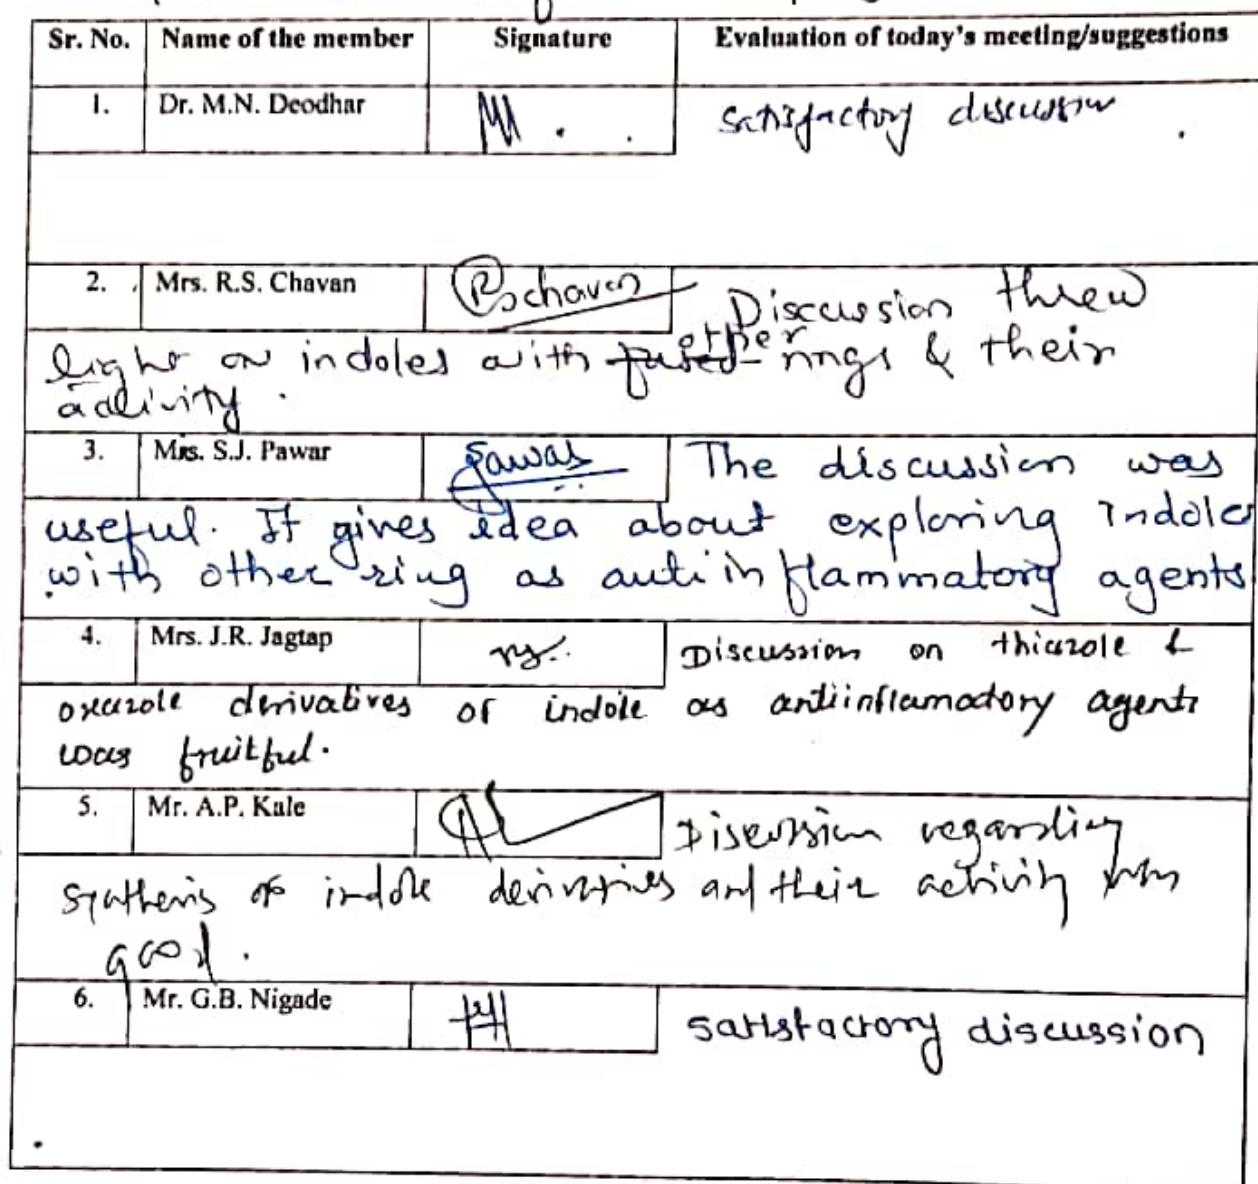 Sr. No. Name of the member Signature Evaluation of today's meeting/suggestions
1. Dr. M.N. Deodhar satisfactory discussion
2. Mrs. R.S. Chavan RSchavan Discussion threw
light on indoles with fused other rings & their
activity.
3. Mrs. S.J. Pawar Pawar The discussion was
useful. It gives idea about exploring indoles
with other ring as antiinflammatory agents
4. Mrs. J.R. Jagtap Discussion on thiazole &
oxazole derivatives of indole as antiinflamatory agents
was fruitful.
5. Mr. A.P. Kale Discussion regarding
synthesis of indole derivatives and their activity was
good.
6. Mr. G.B. Nigade satisfactory discussion